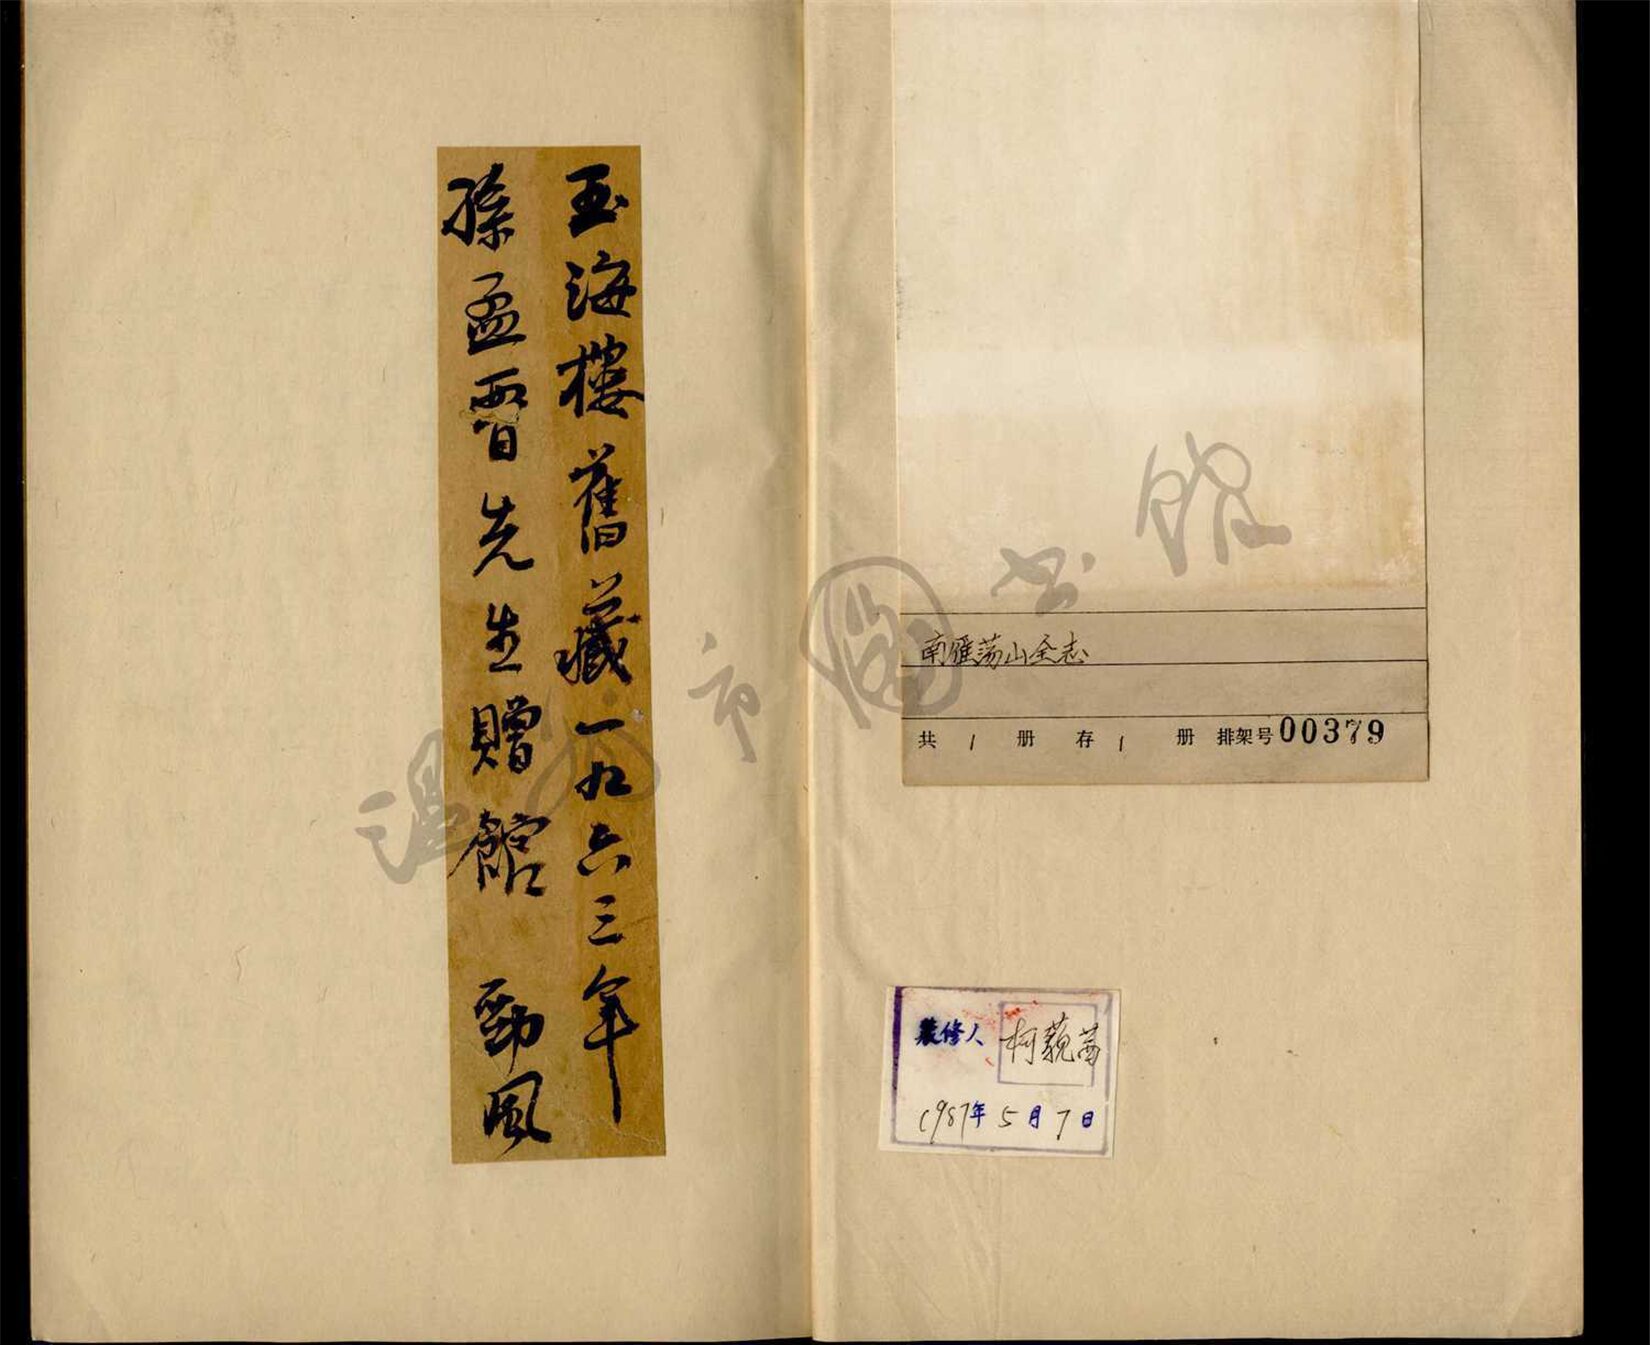 玉海樓舊藏一九六三年
孫孟晋先生贈館 勁風
南雁荡山全志
共 1 册 存 1 册 排架号 00379
装修人 柯藐茜
1987年5月7日
温州市图书馆